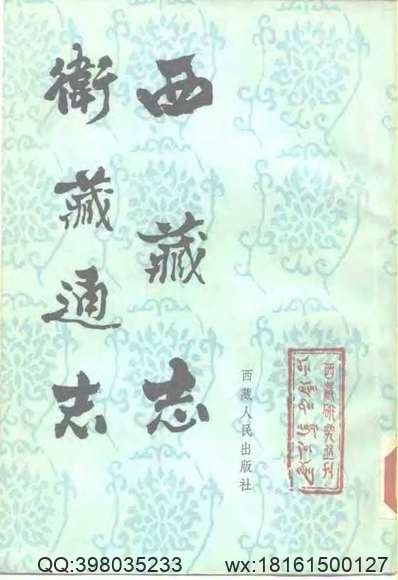 西藏志
衛藏通志
西藏人民出版社
西藏研究丛刊
QQ:398035233
wx:18161500127